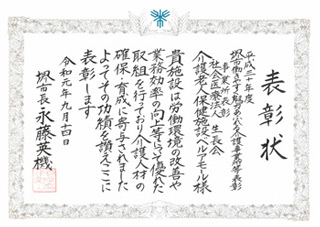 表彰状
平成三十年度
堺市働きやすい魅力ある介護事業所等表彰
事業所表彰
社会医療法人 生長会
介護老人保健施設ベルアモール様
貴施設は労働環境の改善や
業務効率の向上等にて優れた
取組を行っており介護人材の
確保・育成に寄与されました
よってその功績を讃えここに
表彰します
令和元年九月十四日
堺市長 永藤英機